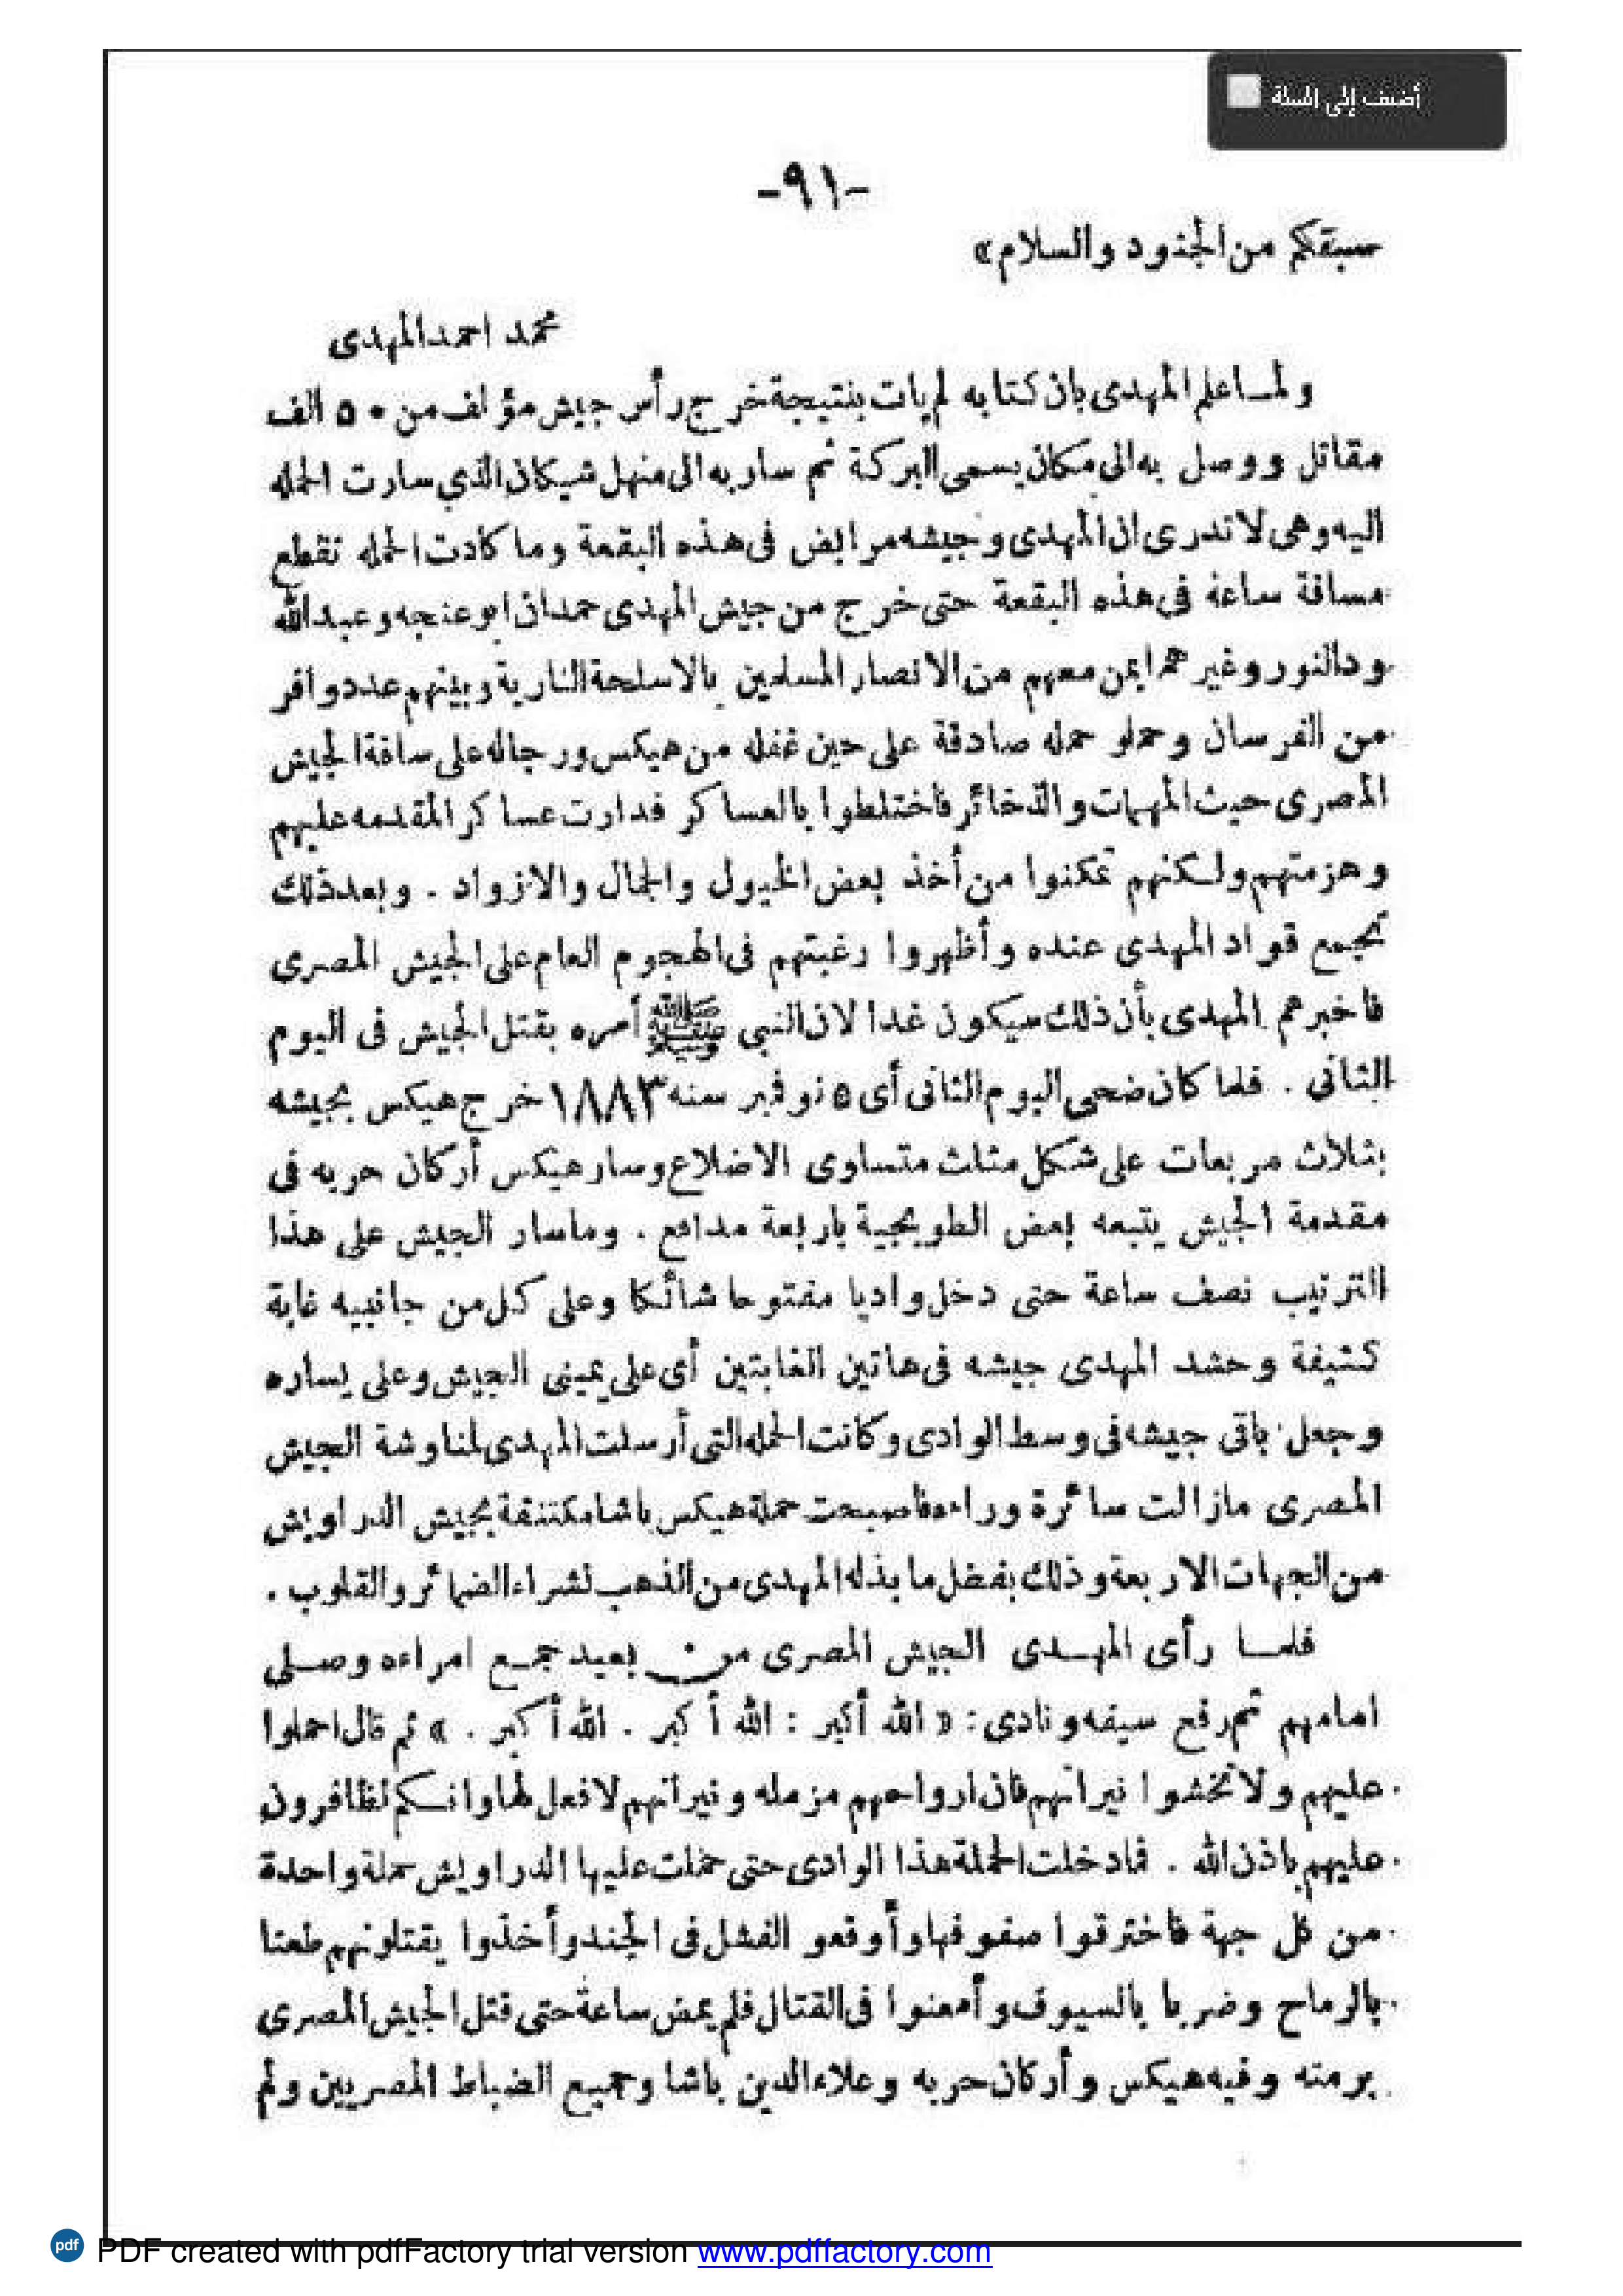 أضف إلى السلة
-٩١-
سبقكم من الجنود والسلام»
محمد احمد المهدى
ولما علم المهدى بان كتابه لم يات بنتيجة خرج رأس جيش مؤلف من ٥٠ الف
مقاتل ووصل به الى مكان يسمى البركة ثم سار به الى منهل شيكان الذي سارت الحمله
اليه وهى لا تدرى ان المهدى وجيشه مرابض فى هذه البقعة وما كادت الحمله تقطع
مسافة ساعة فى هذه البقعة حتى خرج من جيش المهدى حمدان ابو عنجه وعبد الله
ود النور وغيرهما بمن معهم من الانصار المسلحين بالاسلحة النارية وبينهم عدد وافر
من الفرسان وحملو حمله صادقة على حين غفله من هيكس ورجاله على ساقة الجيش
المصرى حيث المهمات والذخائر فاختلطوا بالعساكر فدارت عساكر المقدمه عليهم
وهزمتهم ولكنهم تمكنوا من أخذ بعض الخيول والجمال والازواد . وبعد ذلك
تجمع قواد المهدى عنده وأظهروا رغبتهم فى الهجوم العام على الجيش المصرى
فاخبرهم المهدى بأن ذلك سيكون غدا لان النبي ﷺ أمره بقتل الجيش فى اليوم
الثانى . فلما كان ضحى اليوم الثانى أى ٥ نوفمبر سنه ١٨٨٣ خرج هيكس بجيشه
بثلاث مربعات على شكل مثلث متساوى الاضلاع وسار هيكس أركان حربه فى
مقدمة الجيش يتبعه بعض الطوبجية باربعة مدافع . وما سار الجيش على هذا
الترتيب نصف ساعة حتى دخل واديا مفتوحا شائكا وعلى كل من جانبيه غابة
كثيفة وحشد المهدى جيشه فى هاتين الغابتين أى على يمينى الجيش وعلى يساره
وجعل باقى جيشه فى وسط الوادى وكانت الحمله التى أرسلت المهدى لمناوشة الجيش
المصرى مازالت سائرة وراءه فاصبحت حملة هيكس باشا مكتنفة بجيش الدراويش
من الجهات الاربعة وذلك بفضل ما بذله المهدى من الذهب لشراء الضمائر والقلوب .
فلما رأى المهدى الجيش المصرى من بعيد جمع امراءه وصلى
امامهم ثم رفع سيفه ونادى : « الله أكبر : الله أكبر . الله أكبر . » ثم قال احملوا
عليهم ولا تخشوا نيرانهم فان ارواحهم مزمله ونيرانهم لا فعل لها وانكم لظافرون
عليهم باذن الله . فما دخلت الحملة هذا الوادى حتى حملت عليها الدراويش حملة واحدة
من كل جهة فاخترقوا صفوفها وأوقعو الفشل فى الجند وأخذوا يقتلونهم طعنا
بالرماح وضربا بالسيوف وأمعنوا فى القتال فلم يمض ساعة حتى قتل الجيش المصرى
برمته وفيه هيكس وأركان حربه وعلاء الدين باشا وجميع الضباط المصريين ولم
pdf PDF created with pdfFactory trial version www.pdffactory.com